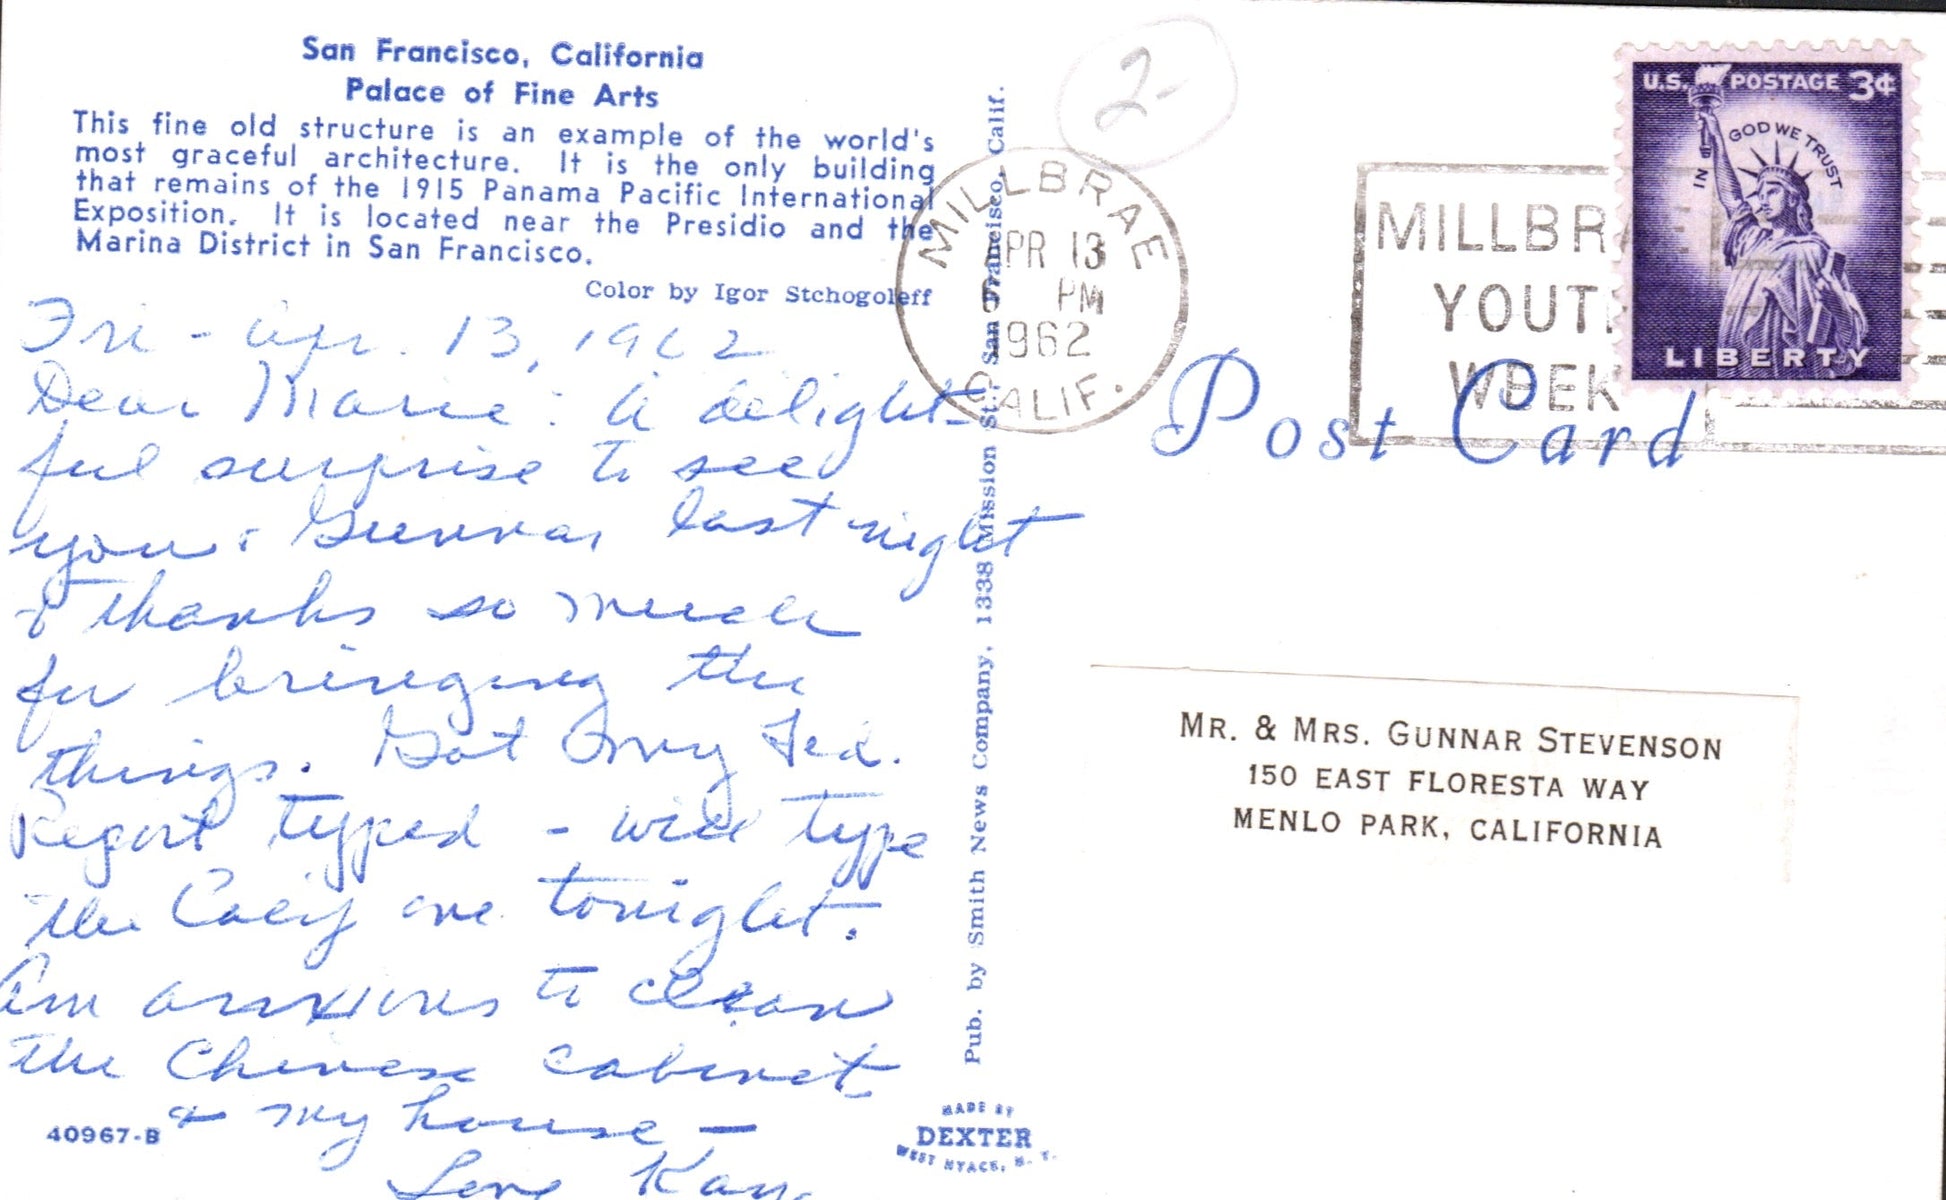 San Francisco, California
Palace of Fine Arts
This fine old structure is an example of the world's
most graceful architecture. It is the only building
that remains of the 1915 Panama Pacific International
Exposition. It is located near the Presidio and the
Marina District in San Francisco.
Color by Igor Stchogoleff
Fri - Apr. 13, 1962
Dear Marie: A delight-
ful surprise to see
you & Gunnar last night
& thanks so much
for bringing the
things. Got my Fed.
Report typed - will type
the Calif one tonight.
Am anxious to clean
the Chinese cabinet
& my house -
Love Kay
40967-B
Pub. by Smith News Company, 1338 Mission St., San Francisco, Calif.
MADE BY
DEXTER
WEST NYACK, N. Y.
2-
MILLBRAE
APR 13
PM
1962
CALIF.
MILLBRAE
YOUTH
WEEK
U.S. POSTAGE 3¢
IN GOD WE TRUST
LIBERTY
Post Card
MR. & MRS. GUNNAR STEVENSON
150 EAST FLORESTA WAY
MENLO PARK, CALIFORNIA